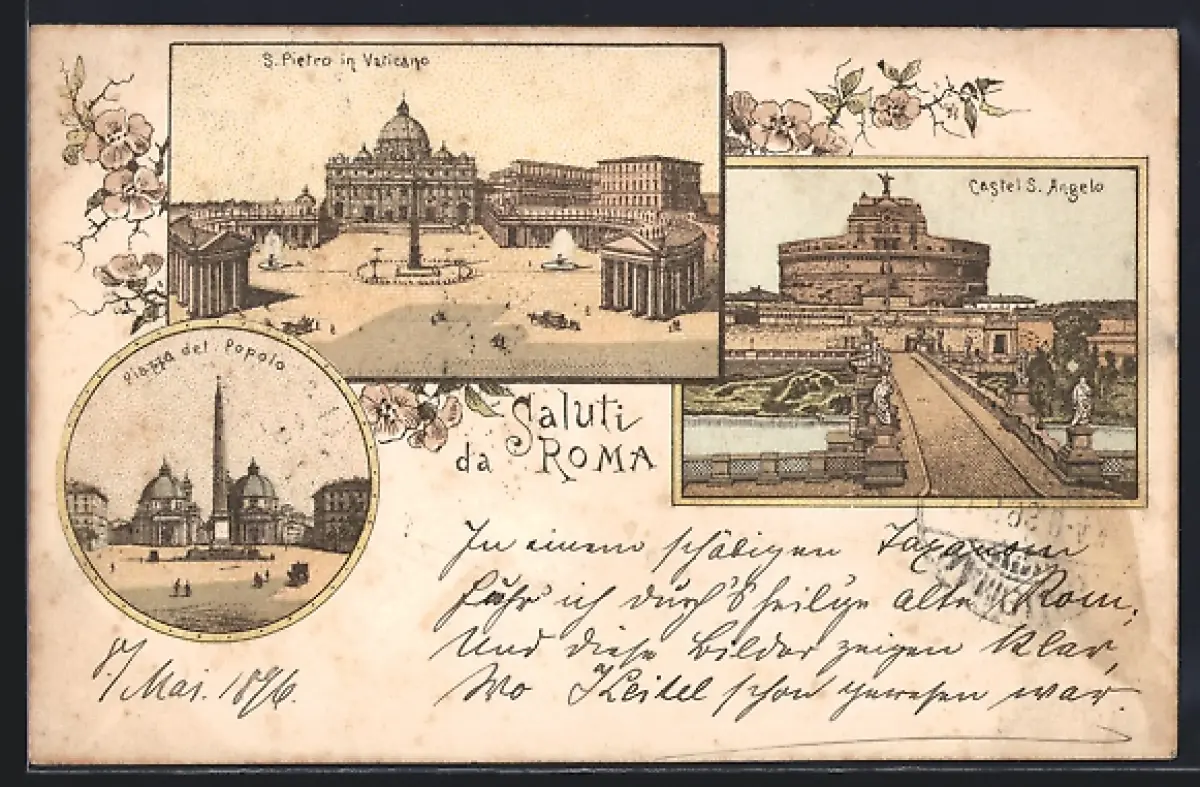 S. Pietro in Vaticano
Castel S. Angelo
Piazza del Popolo
Saluti
da ROMA
In einem schäbigen
Fahr' ich durch's heilige alte Rom,
Und diese Bilder zeigen klar,
Wo Keitel schon gewesen war.
8/ Mai. 1896.